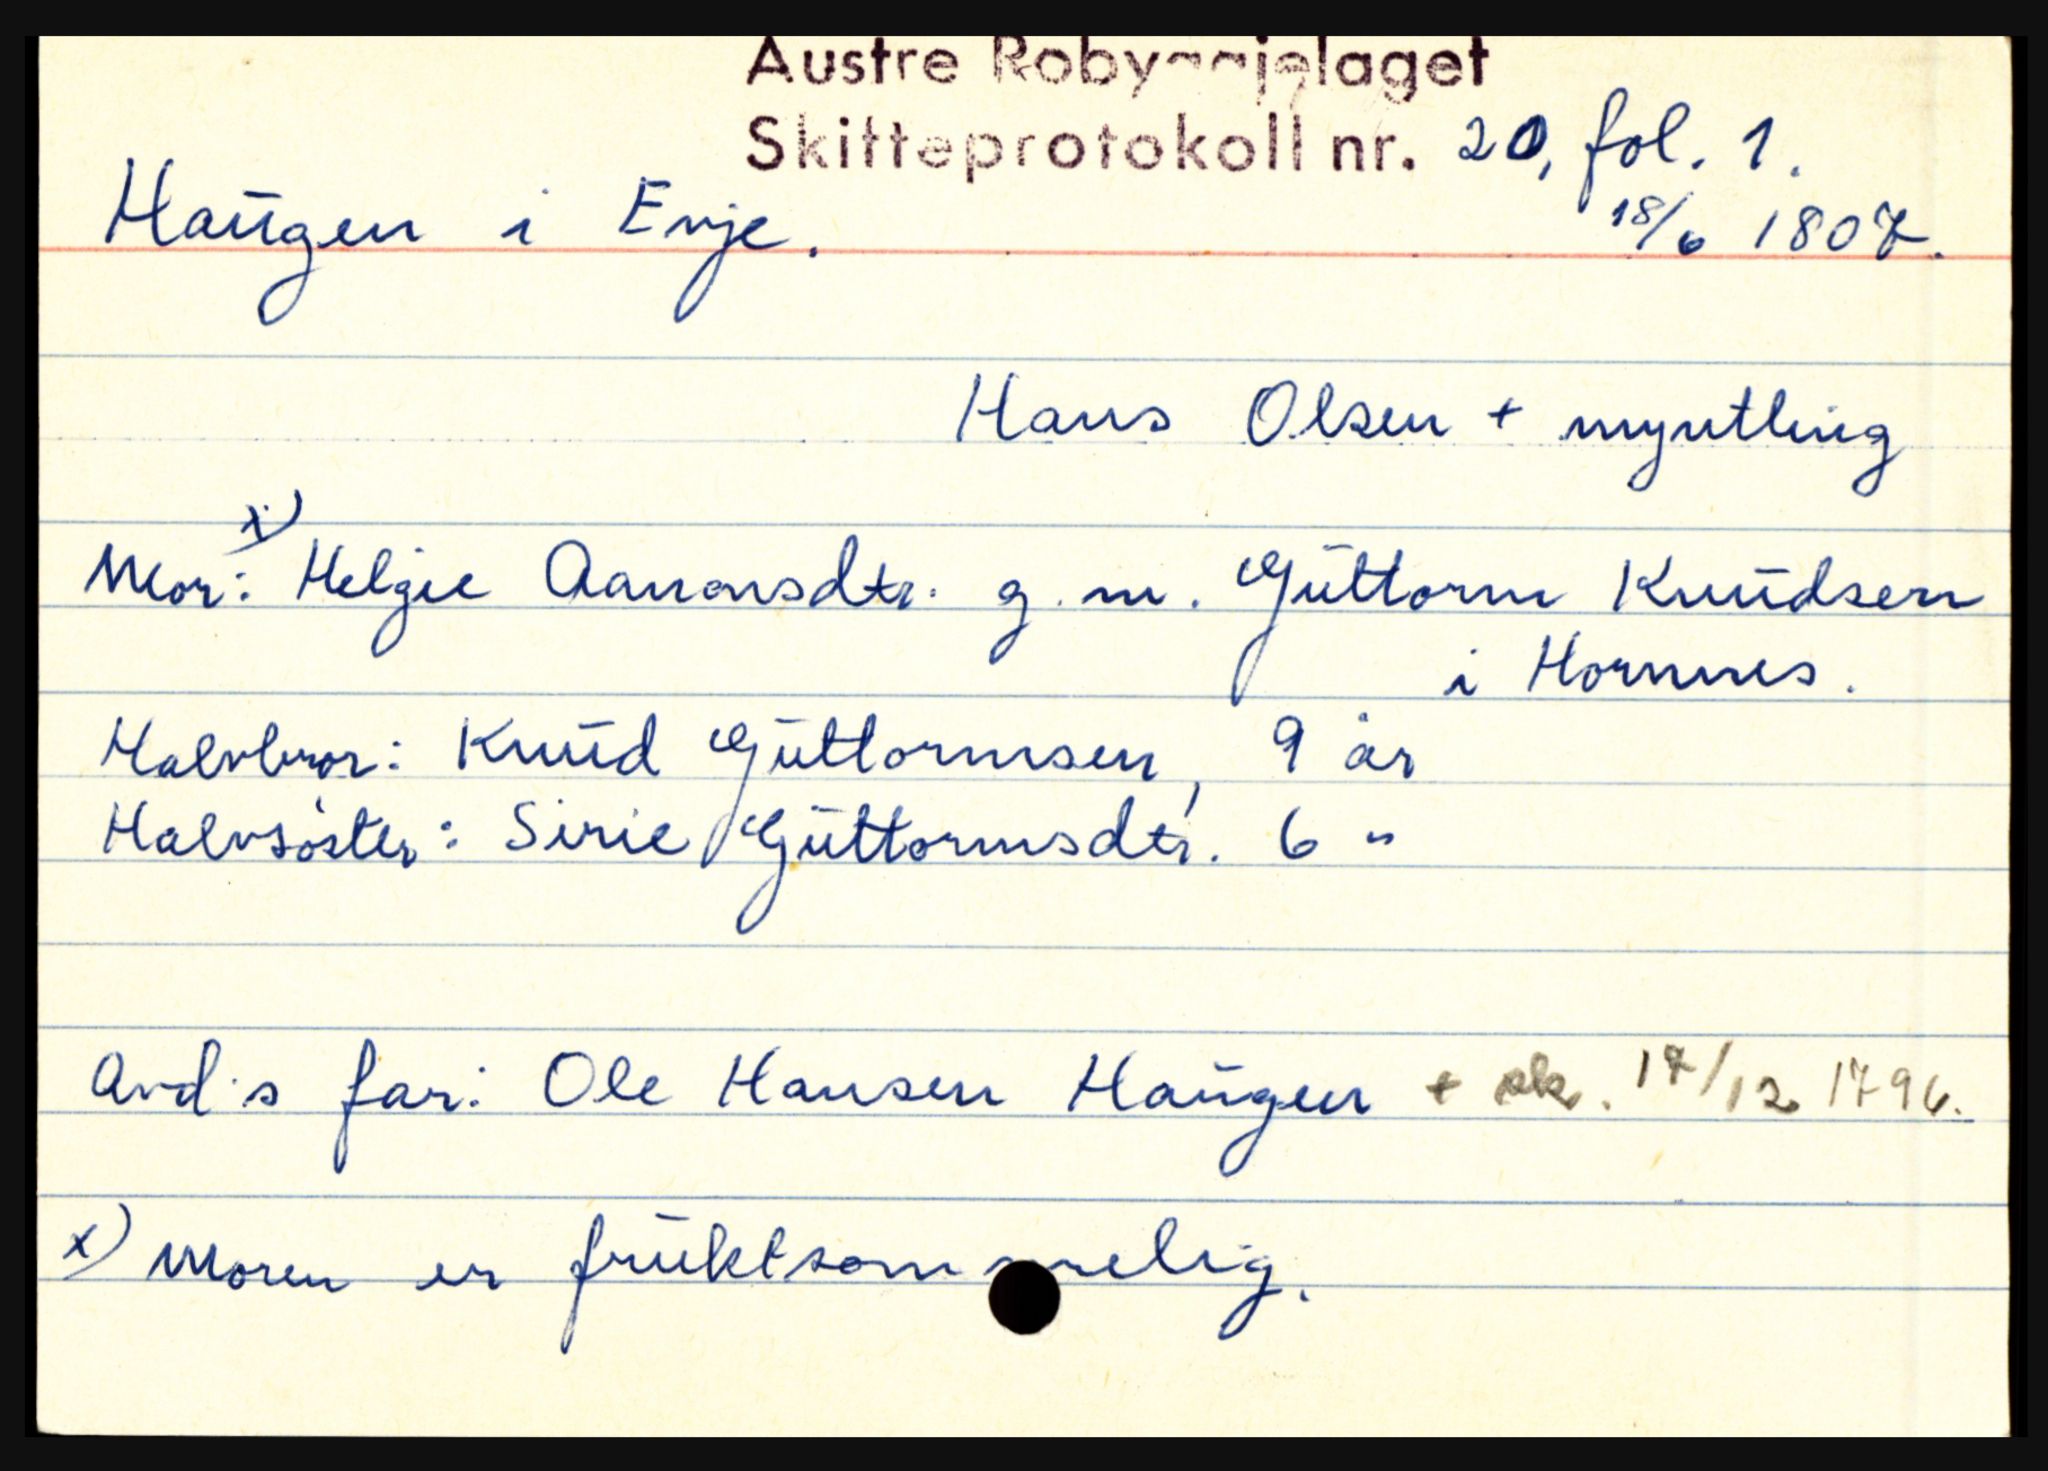 Austre Robyggjelaget
Skifteprotokoll nr. 20, fol. 1.
Haugen i Evje. 18/6 1807.
Hans Olsen + myntling
x)
Mor: Helgie Aanonsdtr. g. m. Guttorm Knudsen
i Hornnes.
Halvbror: Knud Guttormsen, 9 år
Halvsöster: Sirie Guttormsdtr. 6 "
Avd's far: Ole Hansen Haugen + sk. 17/12 1796.
x) Moren er fruktsommelig.